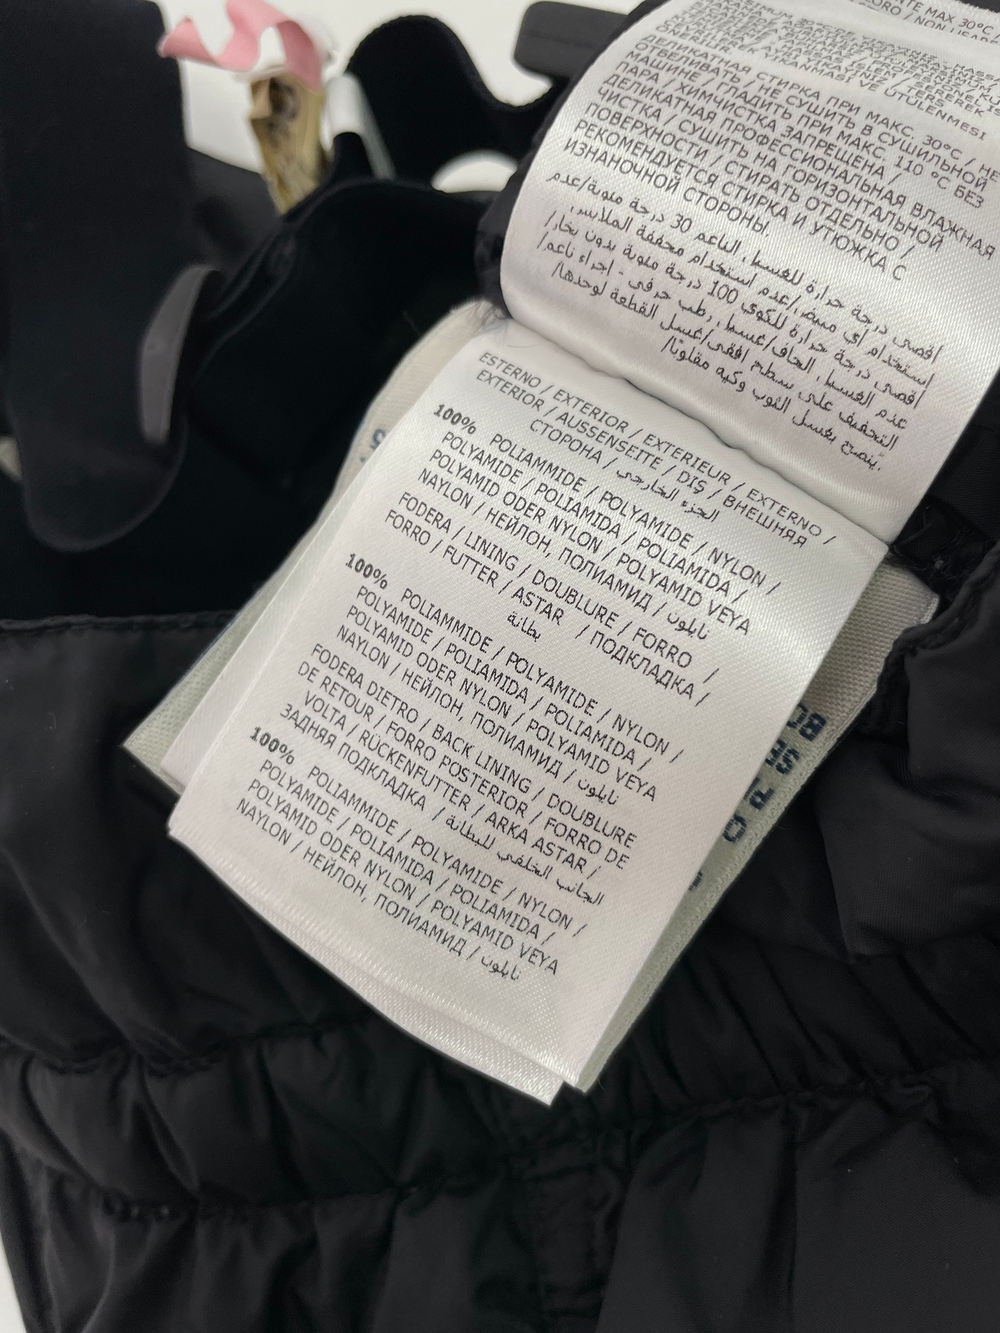 ДЕЛИКАТНАЯ СТИРКА ПРИ МАКС. 30°C / НЕ
ОТБЕЛИВАТЬ / НЕ СУШИТЬ В СУШИЛЬНОЙ
МАШИНЕ / ГЛАДИТЬ ПРИ МАКС. 110 °C БЕЗ
ПАРА / ХИМЧИСТКА ЗАПРЕЩЕНА /
ДЕЛИКАТНАЯ ПРОФЕССИОНАЛЬНАЯ ВЛАЖНАЯ
ЧИСТКА / СУШИТЬ НА ГОРИЗОНТАЛЬНОЙ
ПОВЕРХНОСТИ / СТИРАТЬ ОТДЕЛЬНО /
РЕКОМЕНДУЕТСЯ СТИРКА И УТЮЖКА С
ИЗНАНОЧНОЙ СТОРОНЫ.
أقصى درجة حرارة للغسيل الناعم 30 درجة مئوية/عدم
استخدام أي مبيض/عدم استخدام مجففة الملابس/
أقصى درجة حرارة للكوي 100 درجة مئوية بدون بخار/
عدم الغسيل الجاف/غسيل رطب حرفي - إجراء ناعم/
التجفيف على سطح أفقي/غسل القطعة لوحدها/
ينصح بغسل الثوب وكيه مقلوبًا/
ESTERNO / EXTERIOR / EXTERIEUR / EXTERNO /
EXTERIOR / AUSSENSEITE / DIŞ / ВНЕШНЯЯ
СТОРОНА / الجزء الخارجي
100% POLIAMMIDE / POLYAMIDE / NYLON /
POLYAMIDE / POLIAMIDA / POLIAMIDA /
POLYAMID ODER NYLON / POLYAMID VEYA
NAYLON / НЕЙЛОН, ПОЛИАМИД / نايلون
FODERA / LINING / DOUBLURE / FORRO /
FORRO / FUTTER / ASTAR / ПОДКЛАДКА /
بطانة
100% POLIAMMIDE / POLYAMIDE / NYLON /
POLYAMIDE / POLIAMIDA / POLIAMIDA /
POLYAMID ODER NYLON / POLYAMID VEYA
NAYLON / НЕЙЛОН, ПОЛИАМИД / نايلون
FODERA DIETRO / BACK LINING / DOUBLURE
DE RETOUR / FORRO POSTERIOR / FORRO DE
VOLTA / RÜCKENFUTTER / ARKA ASTAR /
ЗАДНЯЯ ПОДКЛАДКА / الجانب الخلفي للبطانة
100% POLIAMMIDE / POLYAMIDE / NYLON /
POLYAMIDE / POLIAMIDA / POLIAMIDA /
POLYAMID ODER NYLON / POLYAMID VEYA
NAYLON / НЕЙЛОН, ПОЛИАМИД / نايلون